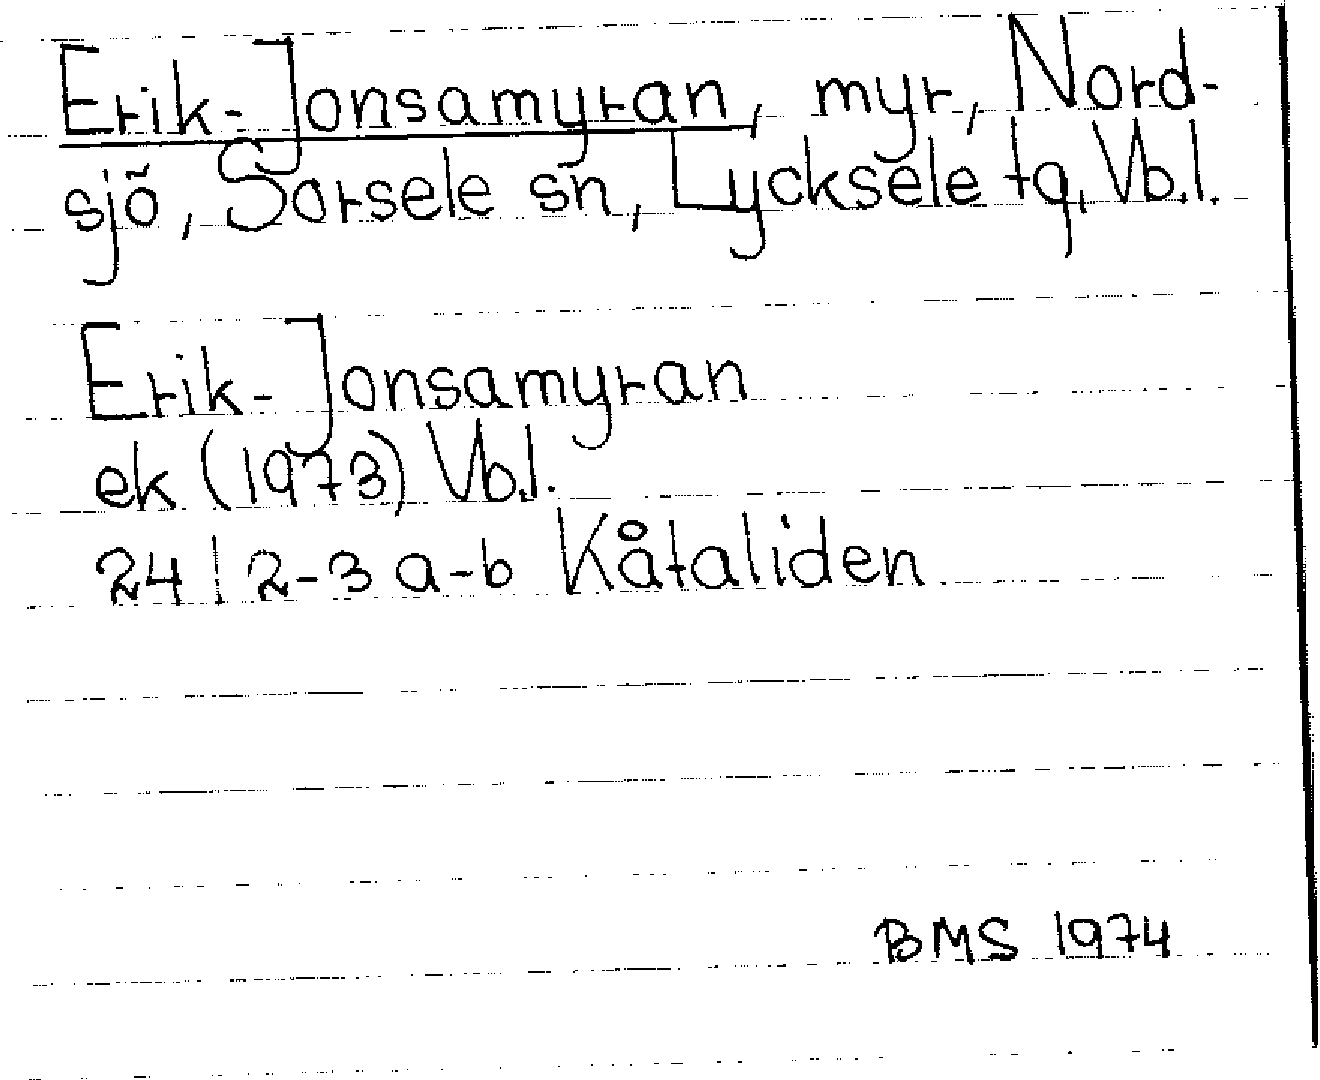 Erik-Jonsamyran, myr, Nord-
sjö, Sorsele sn, Lycksele tg, Vb.l.
Erik-Jonsamyran
ek (1973) Vb.l.
24 I 2-3 a-b Kåtaliden
BMS 1974